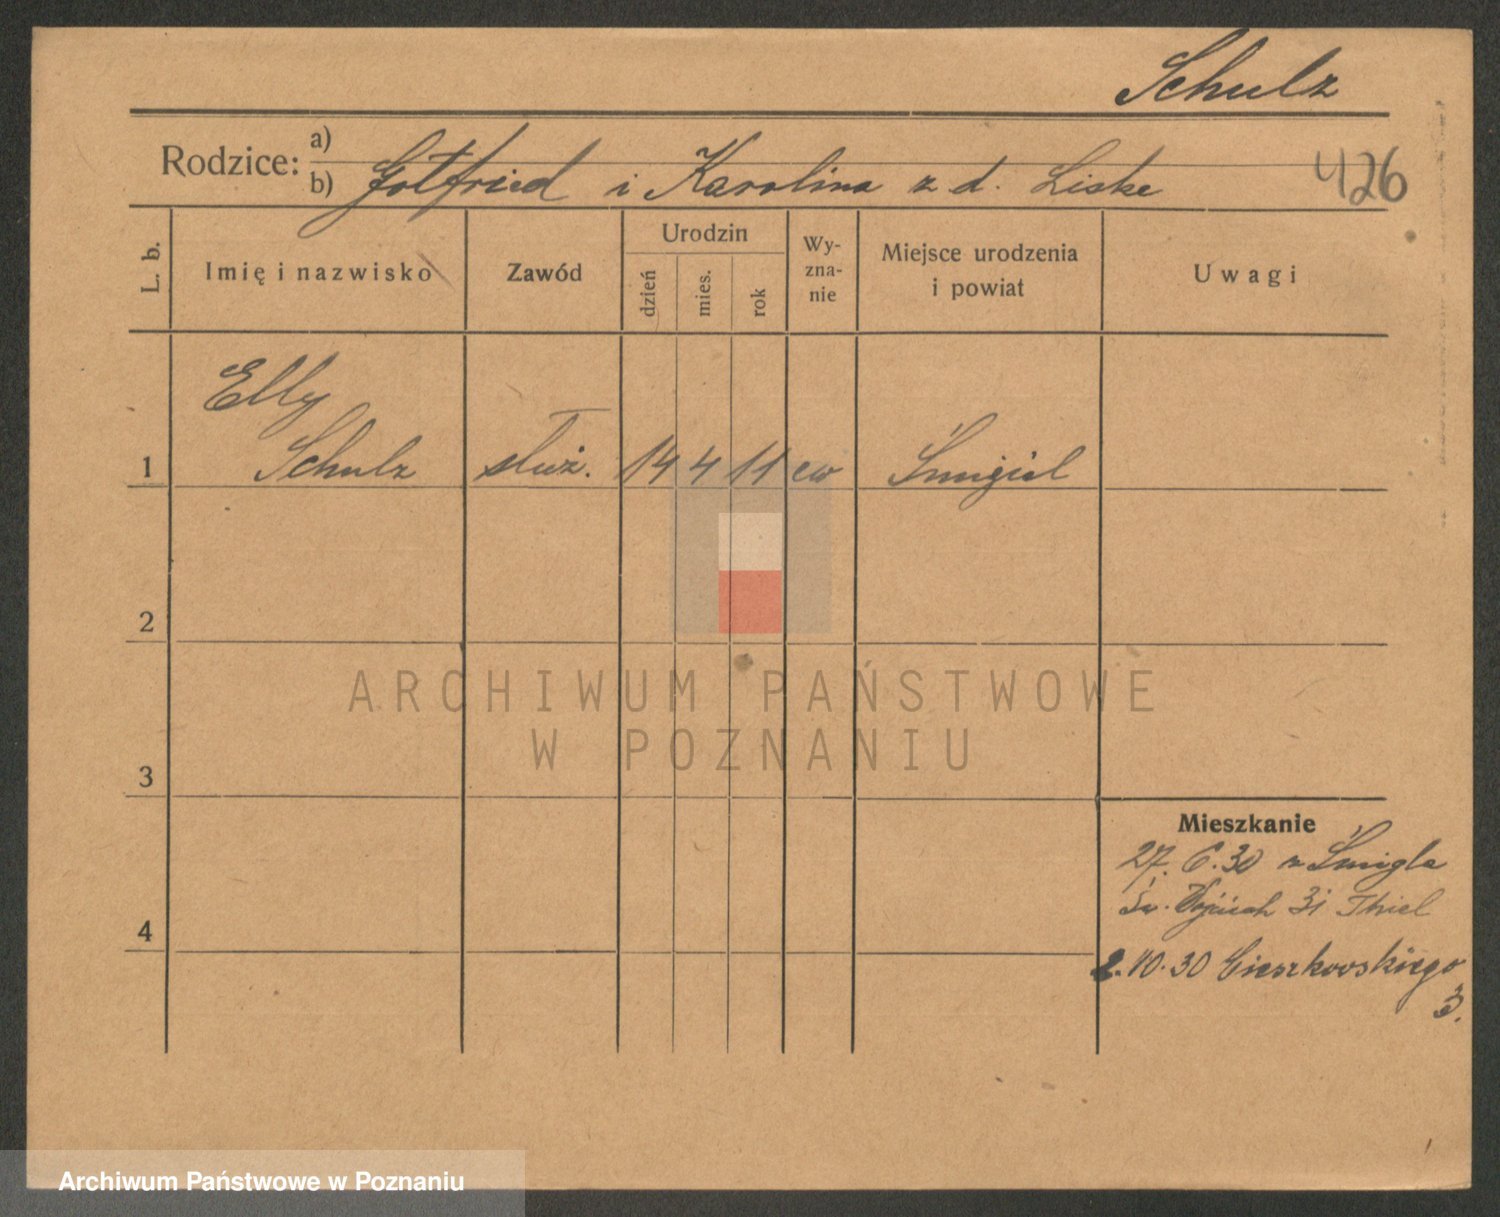 Schulz
Rodzice: a)
b) Gotfried i Karolina z d. Liske
426
L. b.
Imię i nazwisko
Zawód
Urodzin
dzień
mies.
rok
Wy-
zna-
nie
Miejsce urodzenia
i powiat
Uwagi
Elly
1 Schulz służ. 14 4 11 ew Śmigiel
2
3
4
Mieszkanie
27. 6. 30 z Śmigla
Św. Wojciech 31 Thiel
2. 10. 30 Cieszkowskiego
3.
ARCHIWUM PAŃSTWOWE
W POZNANIU
Archiwum Państwowe w Poznaniu